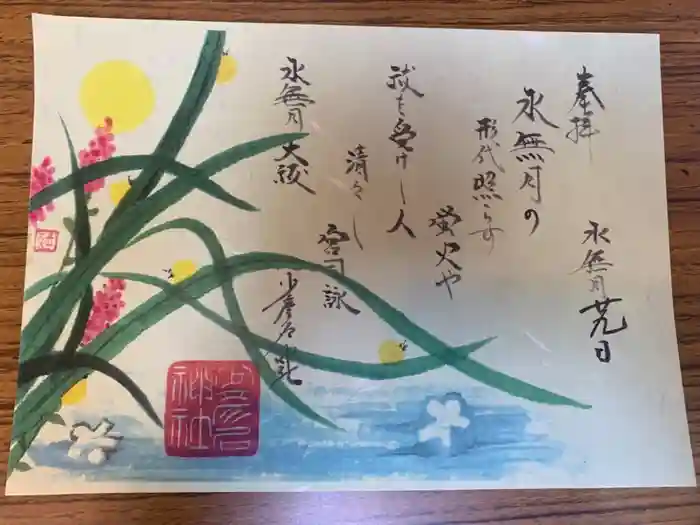 奉拝
水無月廿九日
水無月の
形代照らす
螢火や
祓を受けし人
清々し
宮司 詠
水無月大祓
神社